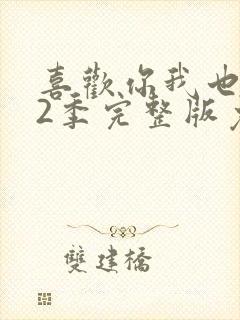 喜歡你我也
2季完整版
雙建橋